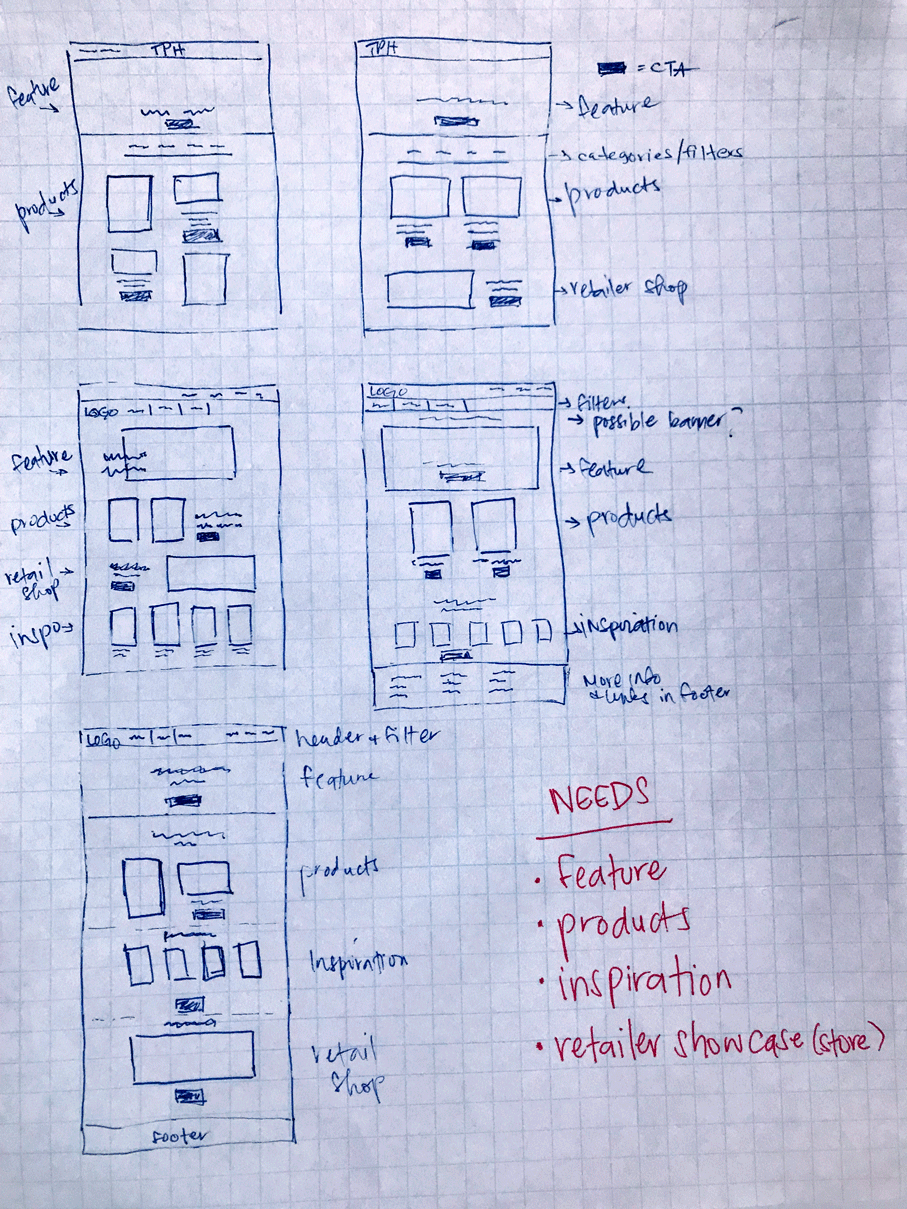 TPH
feature
products
TPH
= CTA
feature
categories/filters
products
retailer shop
LOGO
feature
products
retail
shop
inspo
LOGO
filters
possible banner?
feature
products
inspiration
More info
& links in footer
LOGO
header + filter
feature
products
Inspiration
retail
shop
footer
NEEDS
• feature
• products
• inspiration
• retailer showcase (store)